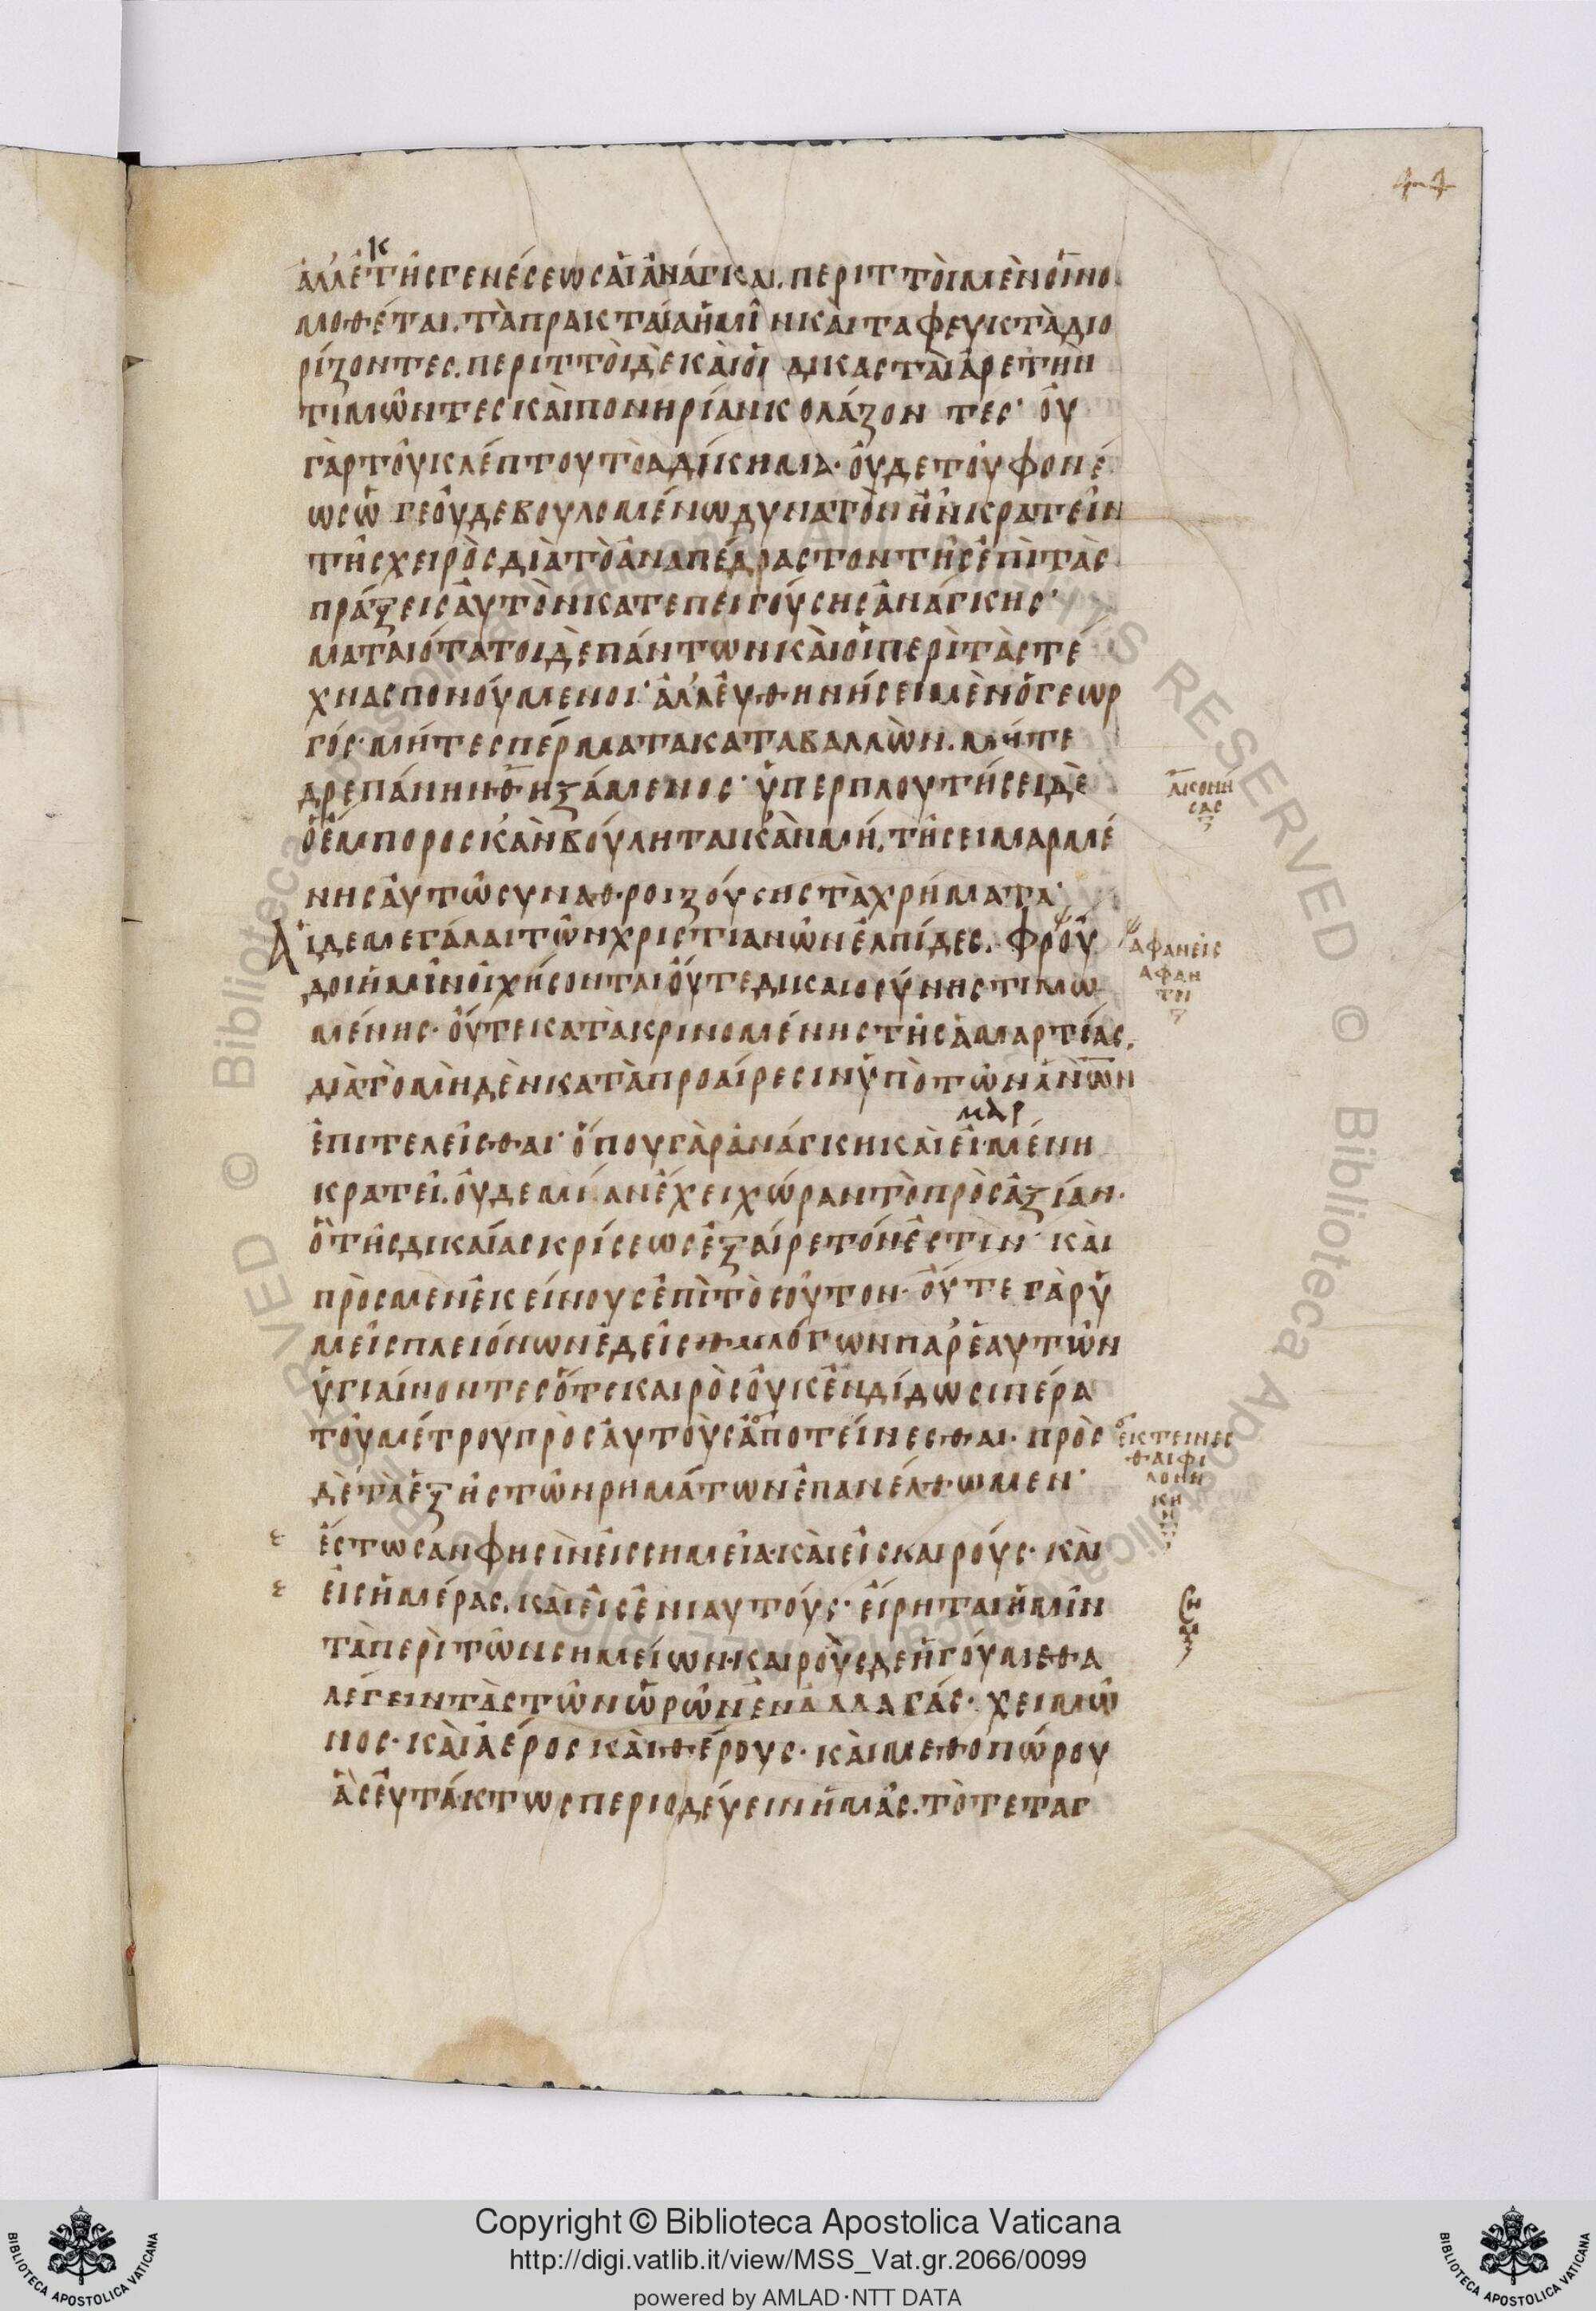 44
κ
ἀλλ' ἐ τῆς γενέσεως αἱ ἀνάγκαι. περιττοὶ μὲν οἱ νο
μοθέται. τὰ πρακταία ἡμῖν καὶ τα φευκτὰ διο
ρίζοντες. περιττοὶ δὲ καὶ οἱ δικασταὶ ἀρετὴν
τιμῶντες καὶ πονηρίαν κολάζοντες· οὐ
γὰρ τοῦ κλέπτου τὸ ἀδίκημα· οὐδε τοῦ φονέ
ως ὧ γε οὐδε βουλομένω δυνατὸν ἦν κρατεῖν
τῆς χειρὸς διὰ τὸ ἀναπέδραστον τῆς ἐπὶ τὰς
πράξεις αὐτὸν κατεπειγούσης ἀνάγκης·
ματαιότατοι δὲ πάντων καὶ οἱ περὶ τὰς τέ
χνας πονούμενοι· ἀλλ' εὐθηνήσει μὲν ὁ γεωρ
γός· μήτε σπέρματα καταβαλλὼν. μήτε
δρεπάνην θηξάμενος· ὑπερπλουτήσει δὲ
ὁ ἔμπορος κἀν βούληται κἀν μή. τῆς ειμαρμέ
νης αὐτῶ συναθροιζούσης τὰ χρήματα·
Αἱ δε μεγάλαι τῶν χριστιανῶν ἐλπίδες. φροῦ
δοι ἡμῖν οἰχήσονται οὔτε δικαιοσύνης τιμω
μένης· οὔτε κατακρινομένης τῆς ἁμαρτίας.
διὰ τὸ μηδὲν κατὰ προαίρεσιν ὑπὸ τῶν ἀνων
μαρ
ἐπιτελεῖσθαι· ὅπου γὰρ ἀνάγκη καὶ εἱμένη
κρατεῖ. οὐδεμίαν ἔχει χώραν τὸ πρὸς ἀξίαν·
ὃ τῆς δικαίας κρίσεως ἐξαίρετόν ἐστιν· καὶ
πρὸς μὲν ἐκείνους ἐπὶ τὸσοῦτον· οὔτε γὰρ ὑ
μεῖς πλειόνων ἐδεῖσθαι λόγων παρ' ἑαυτῶν
ὑγιαίνοντες ὅτε καιρὸς οὐκ ἐνδίδωσι πέρα
τοῦ μέτρου πρὸς αὐτοὺς ἀποτείνεσθαι· πρὸς
δὲ τὰ ἑξῆς τῶν ρημάτων ἐπανέλθωμεν·
ἔστωσάν φησὶν εἰς σημεῖα· καὶ εἰς καιρούς· καὶ
εἰς ἡμέρας. καὶ εἰς ἐνιαυτούς· εἴρηται ἡμῖν
τὰ περὶ τῶν σημείων· καιροὺς δε ἡγούμεθα
λέγειν τὰς τῶν ὡρῶν ἐναλλαγάς· χειμῶ
νος· καὶ ἀέρος καὶ θέρους· καὶ μεθοπώρου
ἃς εὐτάκτως περιοδεύειν ἡμᾶς. τὸ τεταγ
ἀκονή
σας
ἀφανεῖς
αφαν
τη
ἐκτεινες
θαι φι
λονη
κη
Copyright © Biblioteca Apostolica Vaticana
http://digi.vatlib.it/view/MSS_Vat.gr.2066/0099
powered by AMLAD·NTT DATA
BIBLIOTECA APOSTOLICA VATICANA
BIBLIOTECA APOSTOLICA VATICANA